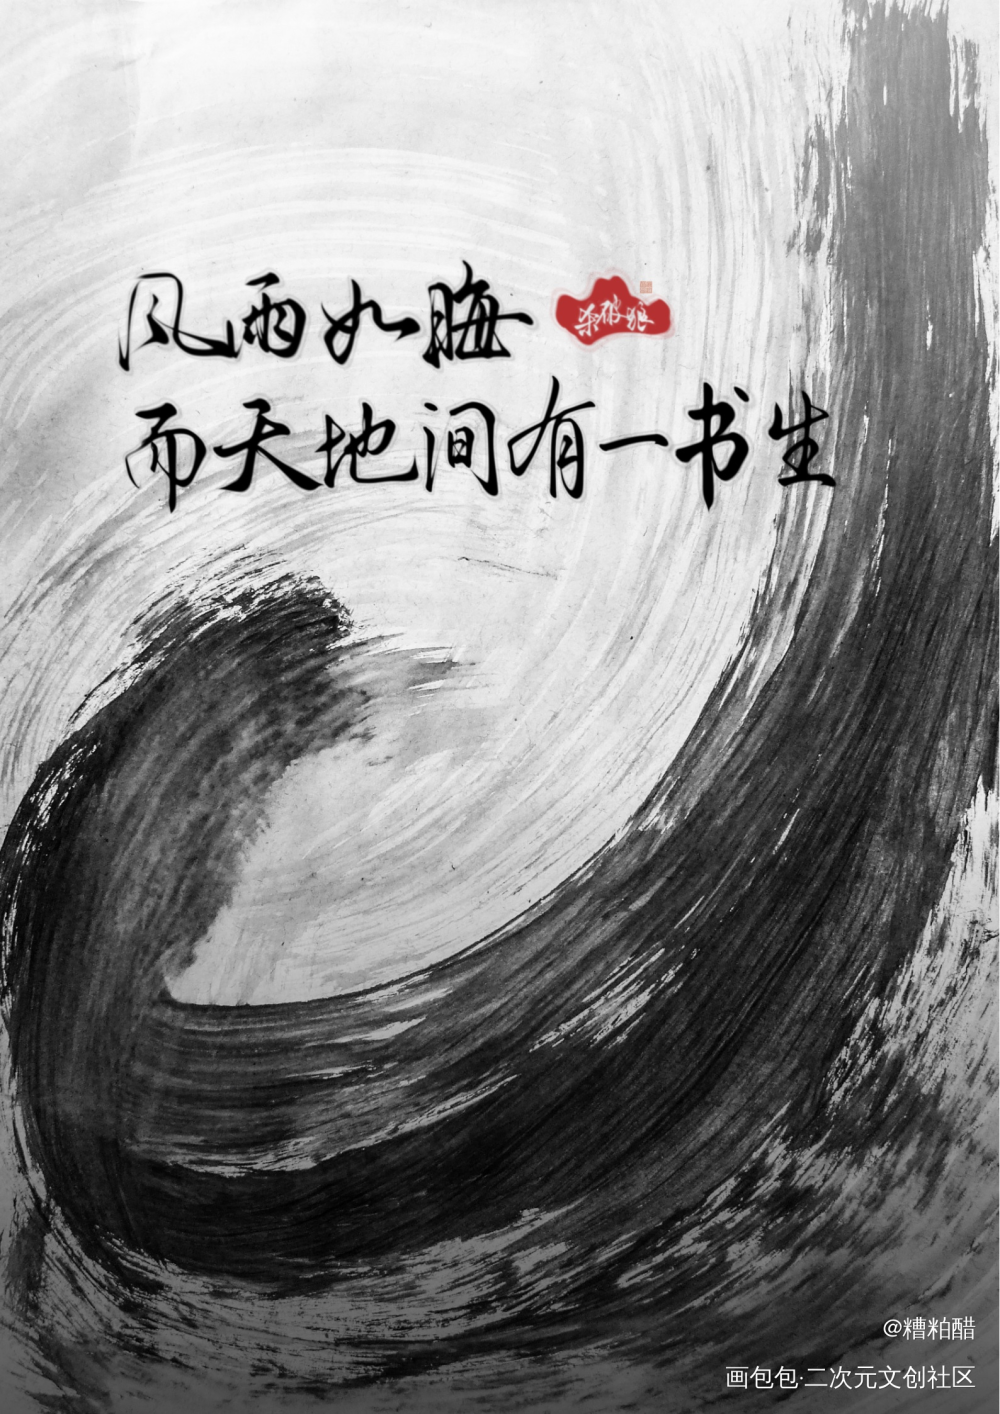 风雨如晦 杀破狼
而天地间有一书生
@糟粕醋
画包包·二次元文创社区